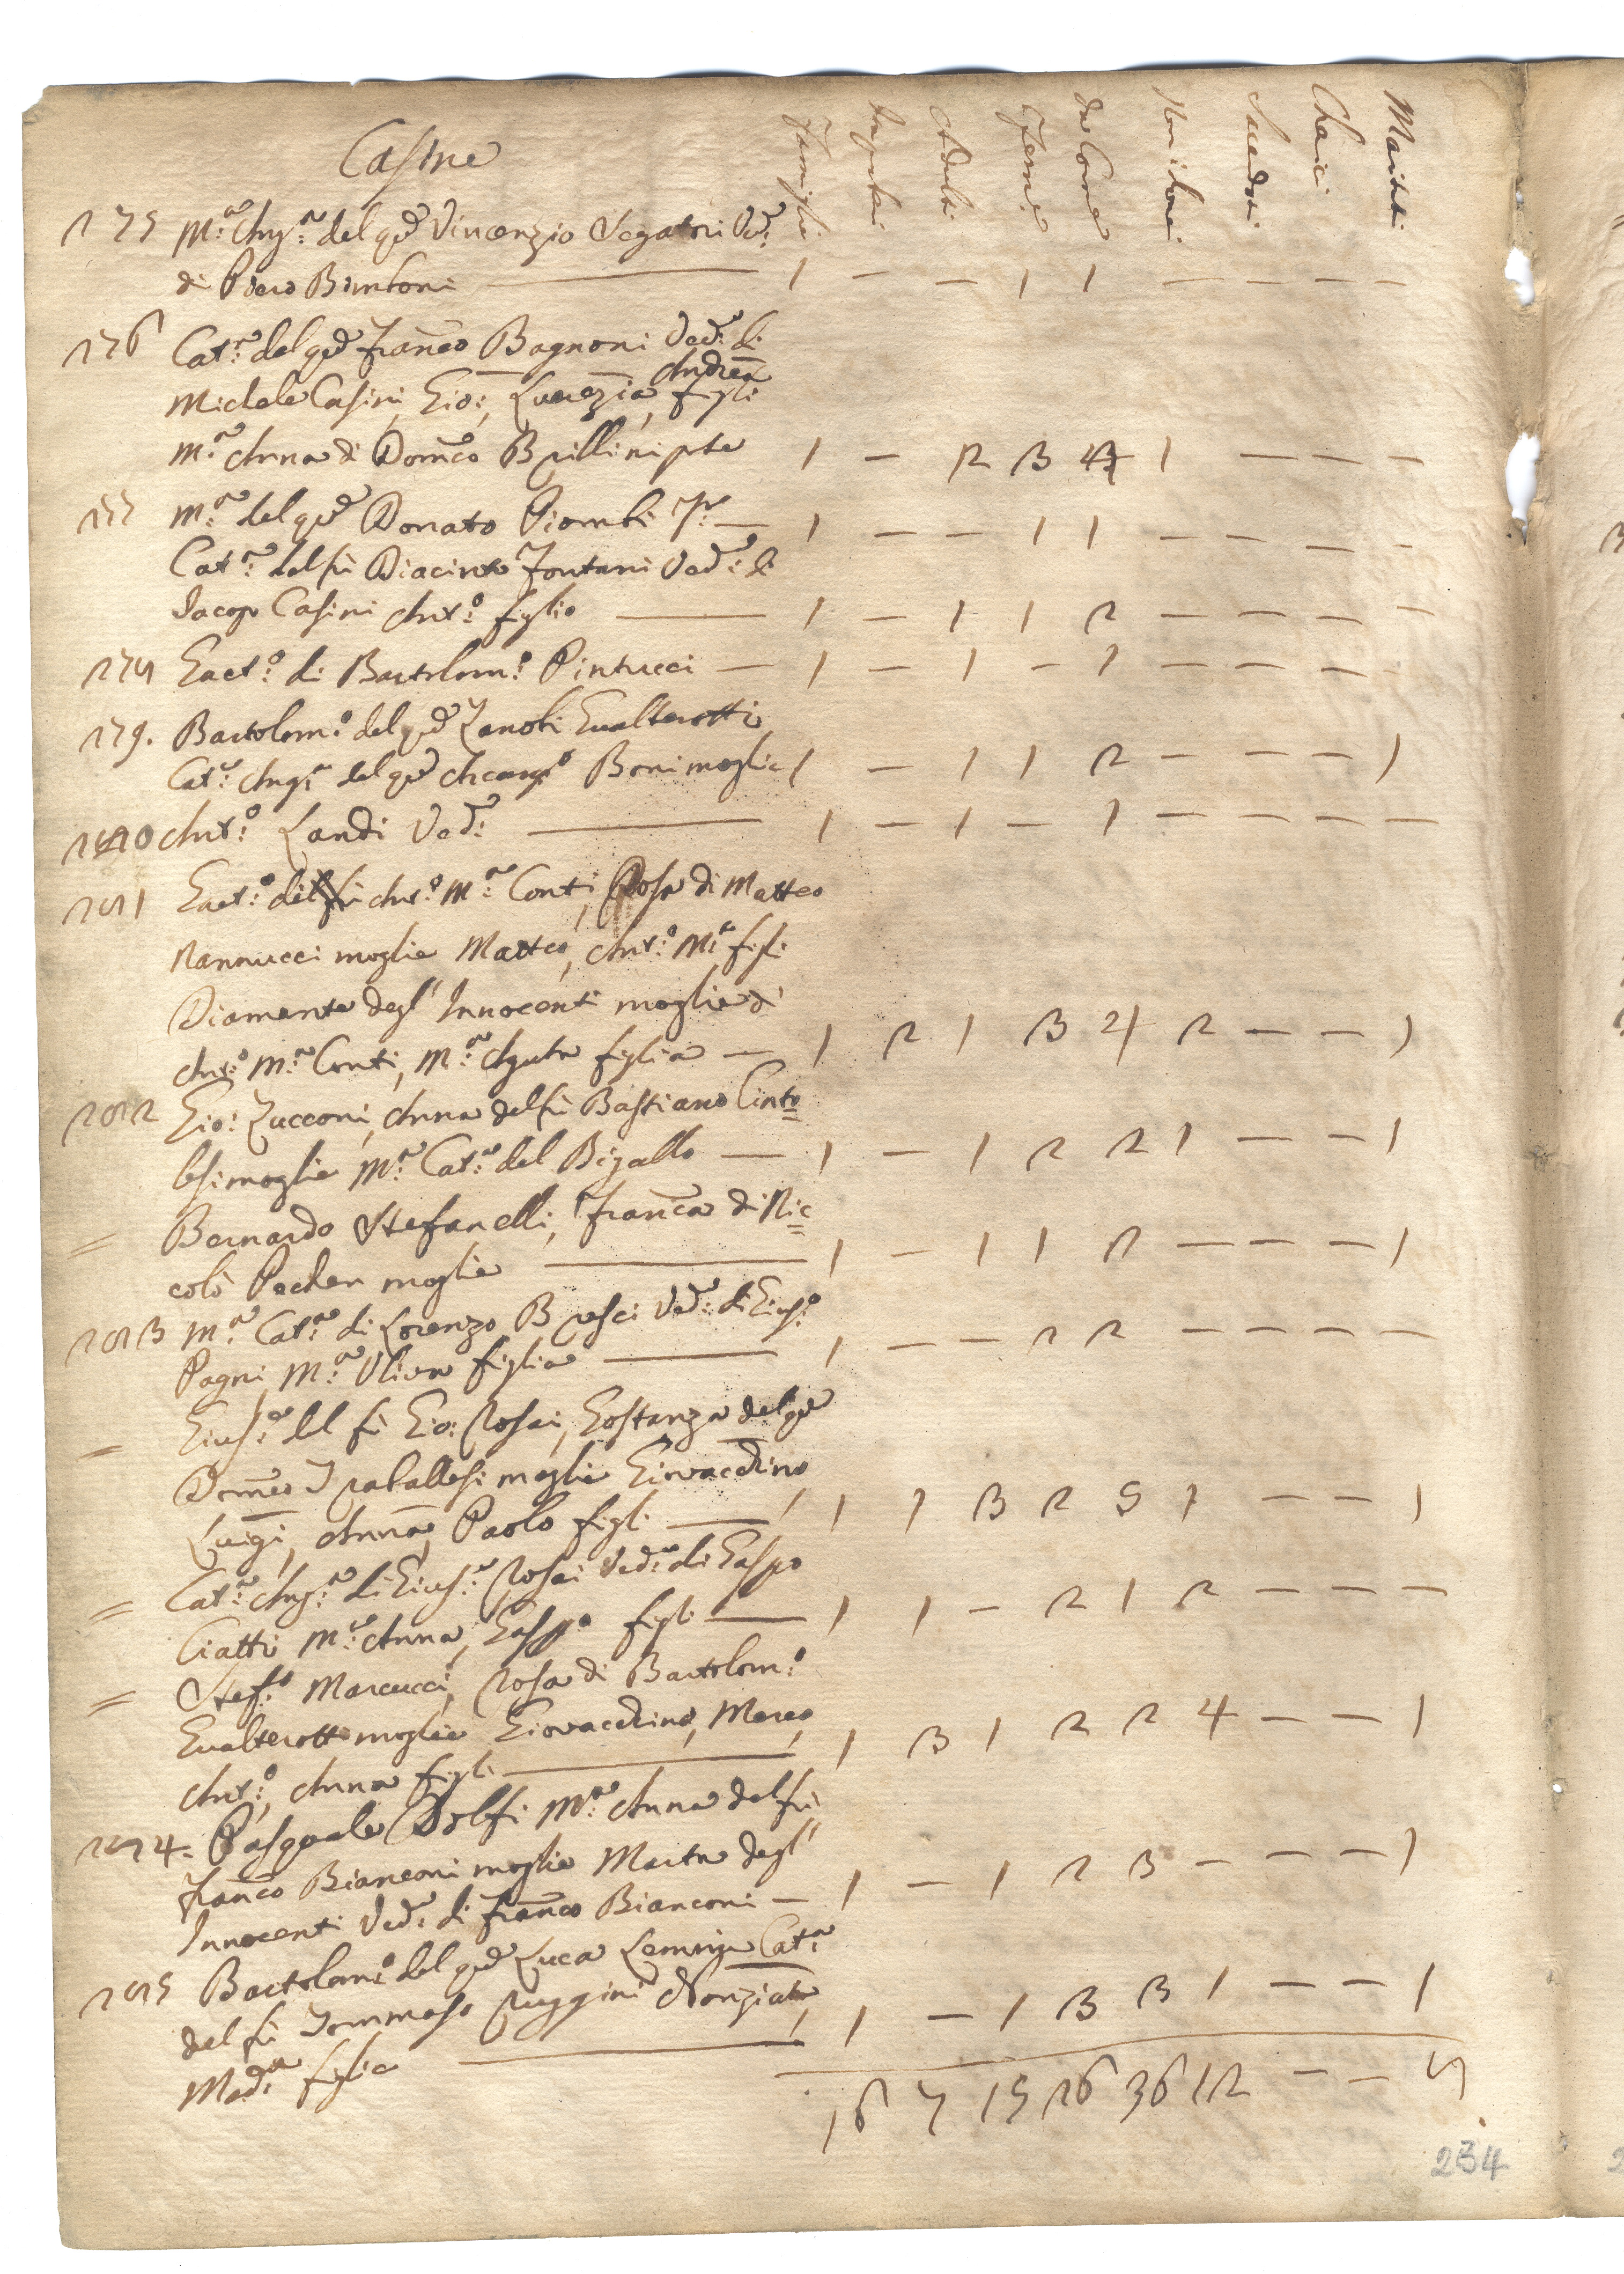 Casine
Famiglie Impuberi Adulti Femne da Comne Non i Comi Sacerdoti Cherici Mariti
275 M.ª Ang.ª del qd Vincenzio Segatori Ved.ª
di Piero Bimboni — 1 — — 1 1 — — — —
276 Cat.ª del qd Franco Bagnoni Ved.ª di
Andrea
Michele Casini, Gio:, Lucrezia, figli
M.ª Anna di Domco Brillini pte 1 — 2 3 4 1 — — —
277 M.ª del qd Donato Piombi — 1 — — 1 1 — — — —
Cat.ª del fù Diacinto Fontani Ved.ª di
Jacopo Casini Ant.º figlio — 1 — 1 1 2 — — — —
278 Gaet.º di Bartolom.º Pintucci — 1 — 1 — 1 — — —
279. Bartolom.º del qd Zanobi Gualterotti
Cat.ª Ang.ª del qd Arcang.º Boni moglie 1 — 1 1 2 — — — 1
280 Ant.º Landi Ved.º — 1 — 1 — 1 — — — —
281 Gaet.º di Ant.º M.ª Conti, Rosa di Matteo
Nannucci moglie Matteo, Ant.º M.ª figli
Diamante degl' Innocenti moglie di
Ant.º M.ª Conti, M.ª Agata figlia — 1 2 1 3 4 2 — — 1
282 Gio: Zucconi, Anna del fù Bastiano Cinto=
lesi moglie M.ª Cat.ª del Bigallo — 1 — 1 2 2 1 — — 1
= Bernardo Stefanelli, Franca di Nic=
colò Pecher moglie — 1 — 1 1 2 — — — 1
283 M.ª Cat.ª di Lorenzo Bresci Ved.ª di Gius.º
Pagni M.ª Uliva figlia — 1 — — 2 2 — — — —
= Gius.e del fù Gio: Rosai, Gostanza del qd
Domco Traballesi moglie Giovacchino,
Luigi, Anna, Paolo figli — 1 1 3 2 5 1 — — 1
= Cat.ª Ang.ª di Gius.e Rosai Ved.ª di Gaspo
Ciatti M.ª Anna, Gasp.º figli — 1 1 — 2 1 2 — — —
= Stef.º Marcucci, Rosa di Bartolom.º
Gualterotti moglie Giovacchino, Marco,
Ant.º, Anna figli — 1 3 1 2 2 4 — — 1
284. Pasquale Dolfi M.ª Anna del fù
Franco Bianconi moglie Marta degl'
Innocenti Ved.ª di Franco Bianconi — 1 — 1 2 3 — — — 1
285 Bartolom.º del qd Luca Lemmi Cat.ª
del fù Tommaso Ruggini Nonziata,
Mad.ª figlie — 1 — 1 3 3 1 — — 1
16 7 15 26 36 12 — — 8
234